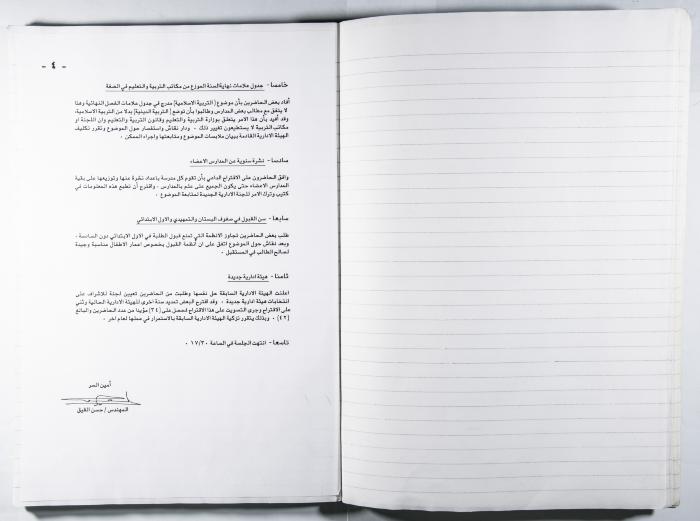 - ٤ -
خامسا - جدول علامات نهاية السنة الموزع من مكاتب التربية والتعليم في الضفة
أفاد بعض الحاضرين بأن موضوع [التربية الاسلامية] مدرج في جدول علامات الفصل النهائية وهذا
لا يتفق مع مطالب بعض المدارس وطالبوا بأن توضع [التربية الدينية] بدلا من التربية الاسلامية،
وقد أفيد بأن هذا الامر يتعلق بوزارة التربية والتعليم وقانون التربية والتعليم وان اللجنة او
مكاتب التربية لا يستطيعون تغيير ذلك ٠ ودار نقاش واستفسار حول الموضوع وتقرر تكليف
الهيئة الادارية القادمة ببيان ملابسات الموضوع ومتابعتها واجراء الممكن ٠
سادسا - نشرة سنوية عن المدارس الاعضاء
وافق الحاضرون على الاقتراح الداعي بأن تقوم كل مدرسة باعداد نشرة عنها وتوزيعها على بقية
المدارس الاعضاء حتى يكون الجميع على علم بالمدارس ، واقترح أن تطبع هذه المعلومات في
كتيب وترك الامر للجنة الادارية الجديدة لمتابعة الموضوع ٠
سابعا - سن القبول في صفوف البستان والتمهيدي والاول الابتدائي
طلب بعض الحاضرين تجاوز الانظمة التي تمنع قبول الطلبة في الاول الابتدائي دون السادسة ،
وبعد نقاش حول الموضوع اتفق على ان أنظمة القبول بخصوص اعمار الاطفال مناسبة وجيدة
لصالح الطالب في المستقبل ٠
ثامنا - هيئة ادارية جديدة
اعلنت الهيئة الادارية السابقة حل نفسها وطلبت من الحاضرين تعيين لجنة للاشراف على
انتخابات هيئة ادارية جديدة ٠ وقد اقترح البعض تمديد سنة اخرى للهيئة الادارية الحالية وثني
على الاقتراح وجرى التصويت على هذا الاقتراح فحصل على [٣٤] مؤيدا من عدد الحاضرين والبالغ
[٤٢] ٠ وبذلك يتقرر تزكية الهيئة الادارية السابقة بالاستمرار في عملها لعام اخر ٠
تاسعا - انتهت الجلسة في الساعة ١٧/٣٠ ٠
أمين السر
المهندس / حسن القيق